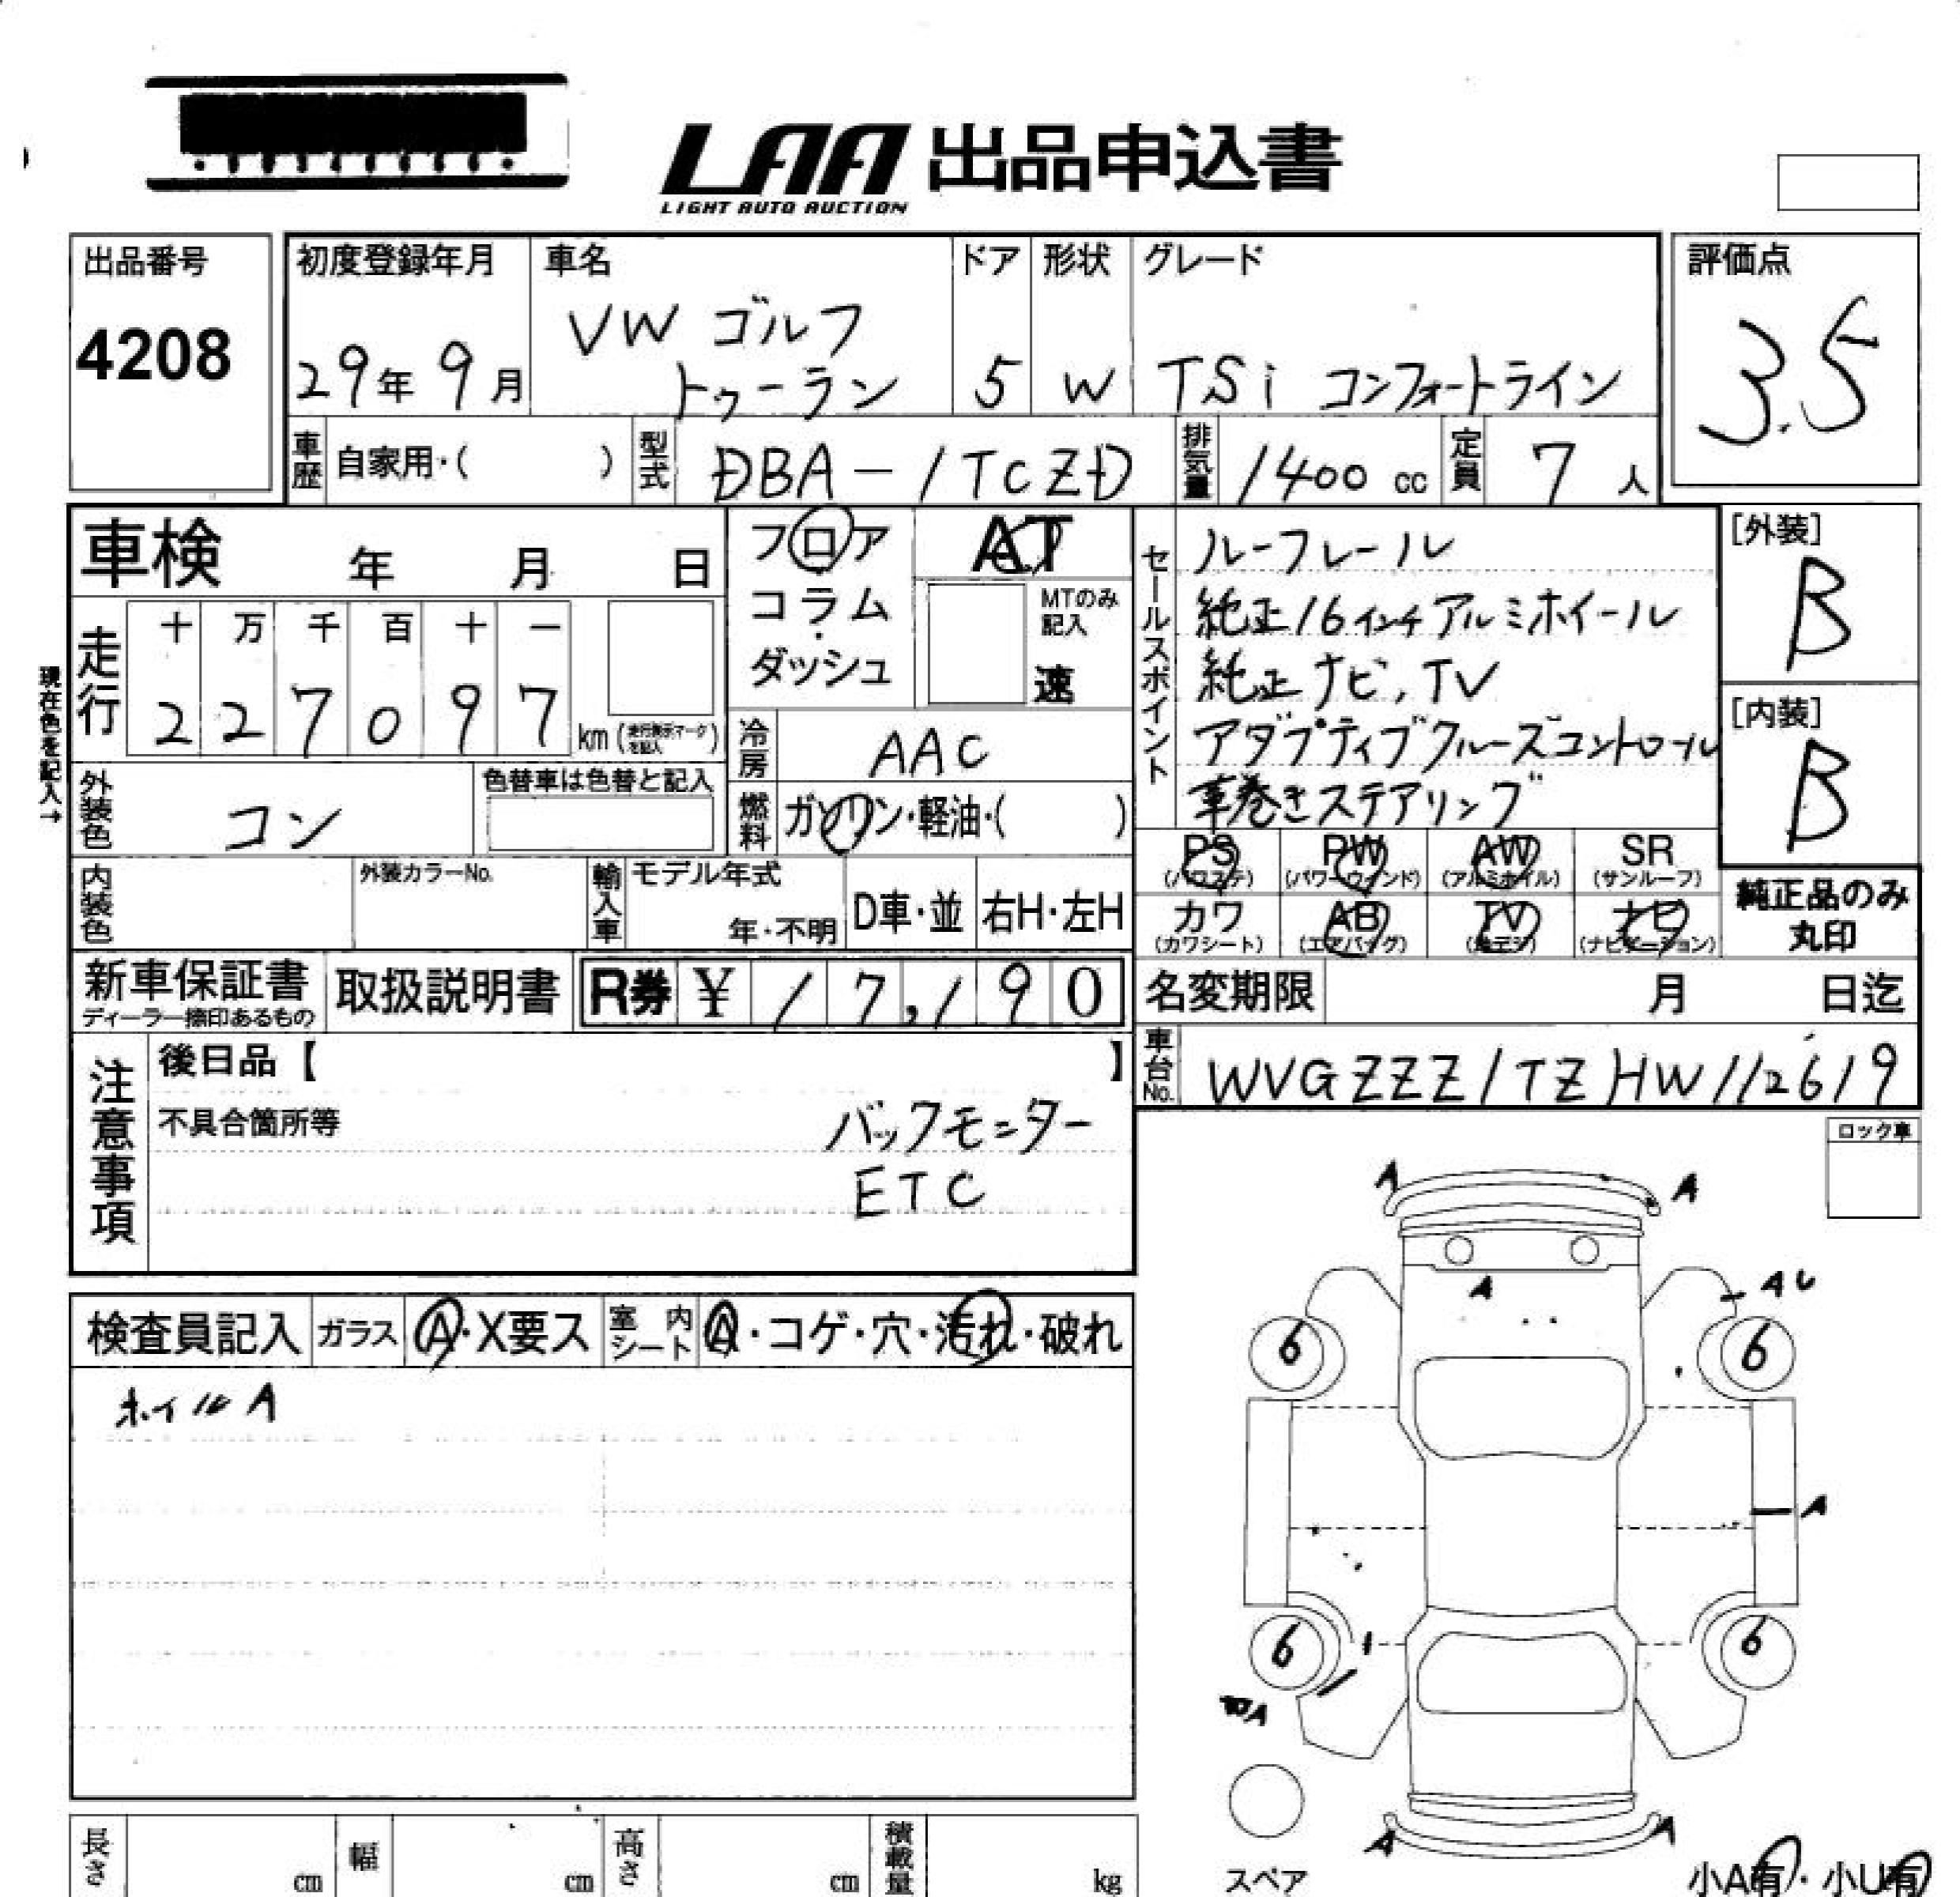 LAA 出品申込書
LIGHT AUTO AUCTION
出品番号
4208
初度登録年月
29年9月
車名
VW ゴルフ
トゥーラン
ドア
5
形状
W
グレード
TSi コンフォートライン
評価点
3.5
車歴 自家用・( )
型式 DBA-1TCZD
排気量 1400 cc
定員 7 人
車検 年 月 日
フロア
コラム
・
ダッシュ
AT
MTのみ
記入
速
走行
十 万 千 百 十 一
2 2 7 0 9 7 km
現在色を記入→
冷房 AAC
外装色 コン
色替車は色替と記入
燃料 ガソリン・軽油・( )
内装色
外装カラーNo.
輸入車
モデル年式
年・不明
D車・並
右H・左H
セールスポイント
ルーフレール
純正16インチアルミホイール
純正ナビ,TV
アダプティブクルーズコントロール
革巻きステアリング
[外装]
B
[内装]
B
PS PW AW SR
(パワステ) (パワーウィンド) (アルミホイル) (サンルーフ)
カワ AB TV ナビ
(カワシート) (エアバッグ) (地デジ) (ナビゲーション)
純正品のみ
丸印
新車保証書
ディーラー捺印あるもの
取扱説明書
R券 ¥ 17,190
名変期限 月 日迄
車台No. WVGZZZ1TZHW112619
注意事項
後日品【 】
不具合箇所等
バックモニター
ETC
ロック車
検査員記入
ガラス A・X要ス
室内シート A・コゲ・穴・汚れ・破れ
ホイルA
A A
A
AU
6 6
A
6 6
A A
スペア
小A有・小U有
長さ cm
幅 cm
高さ cm
積載量 kg